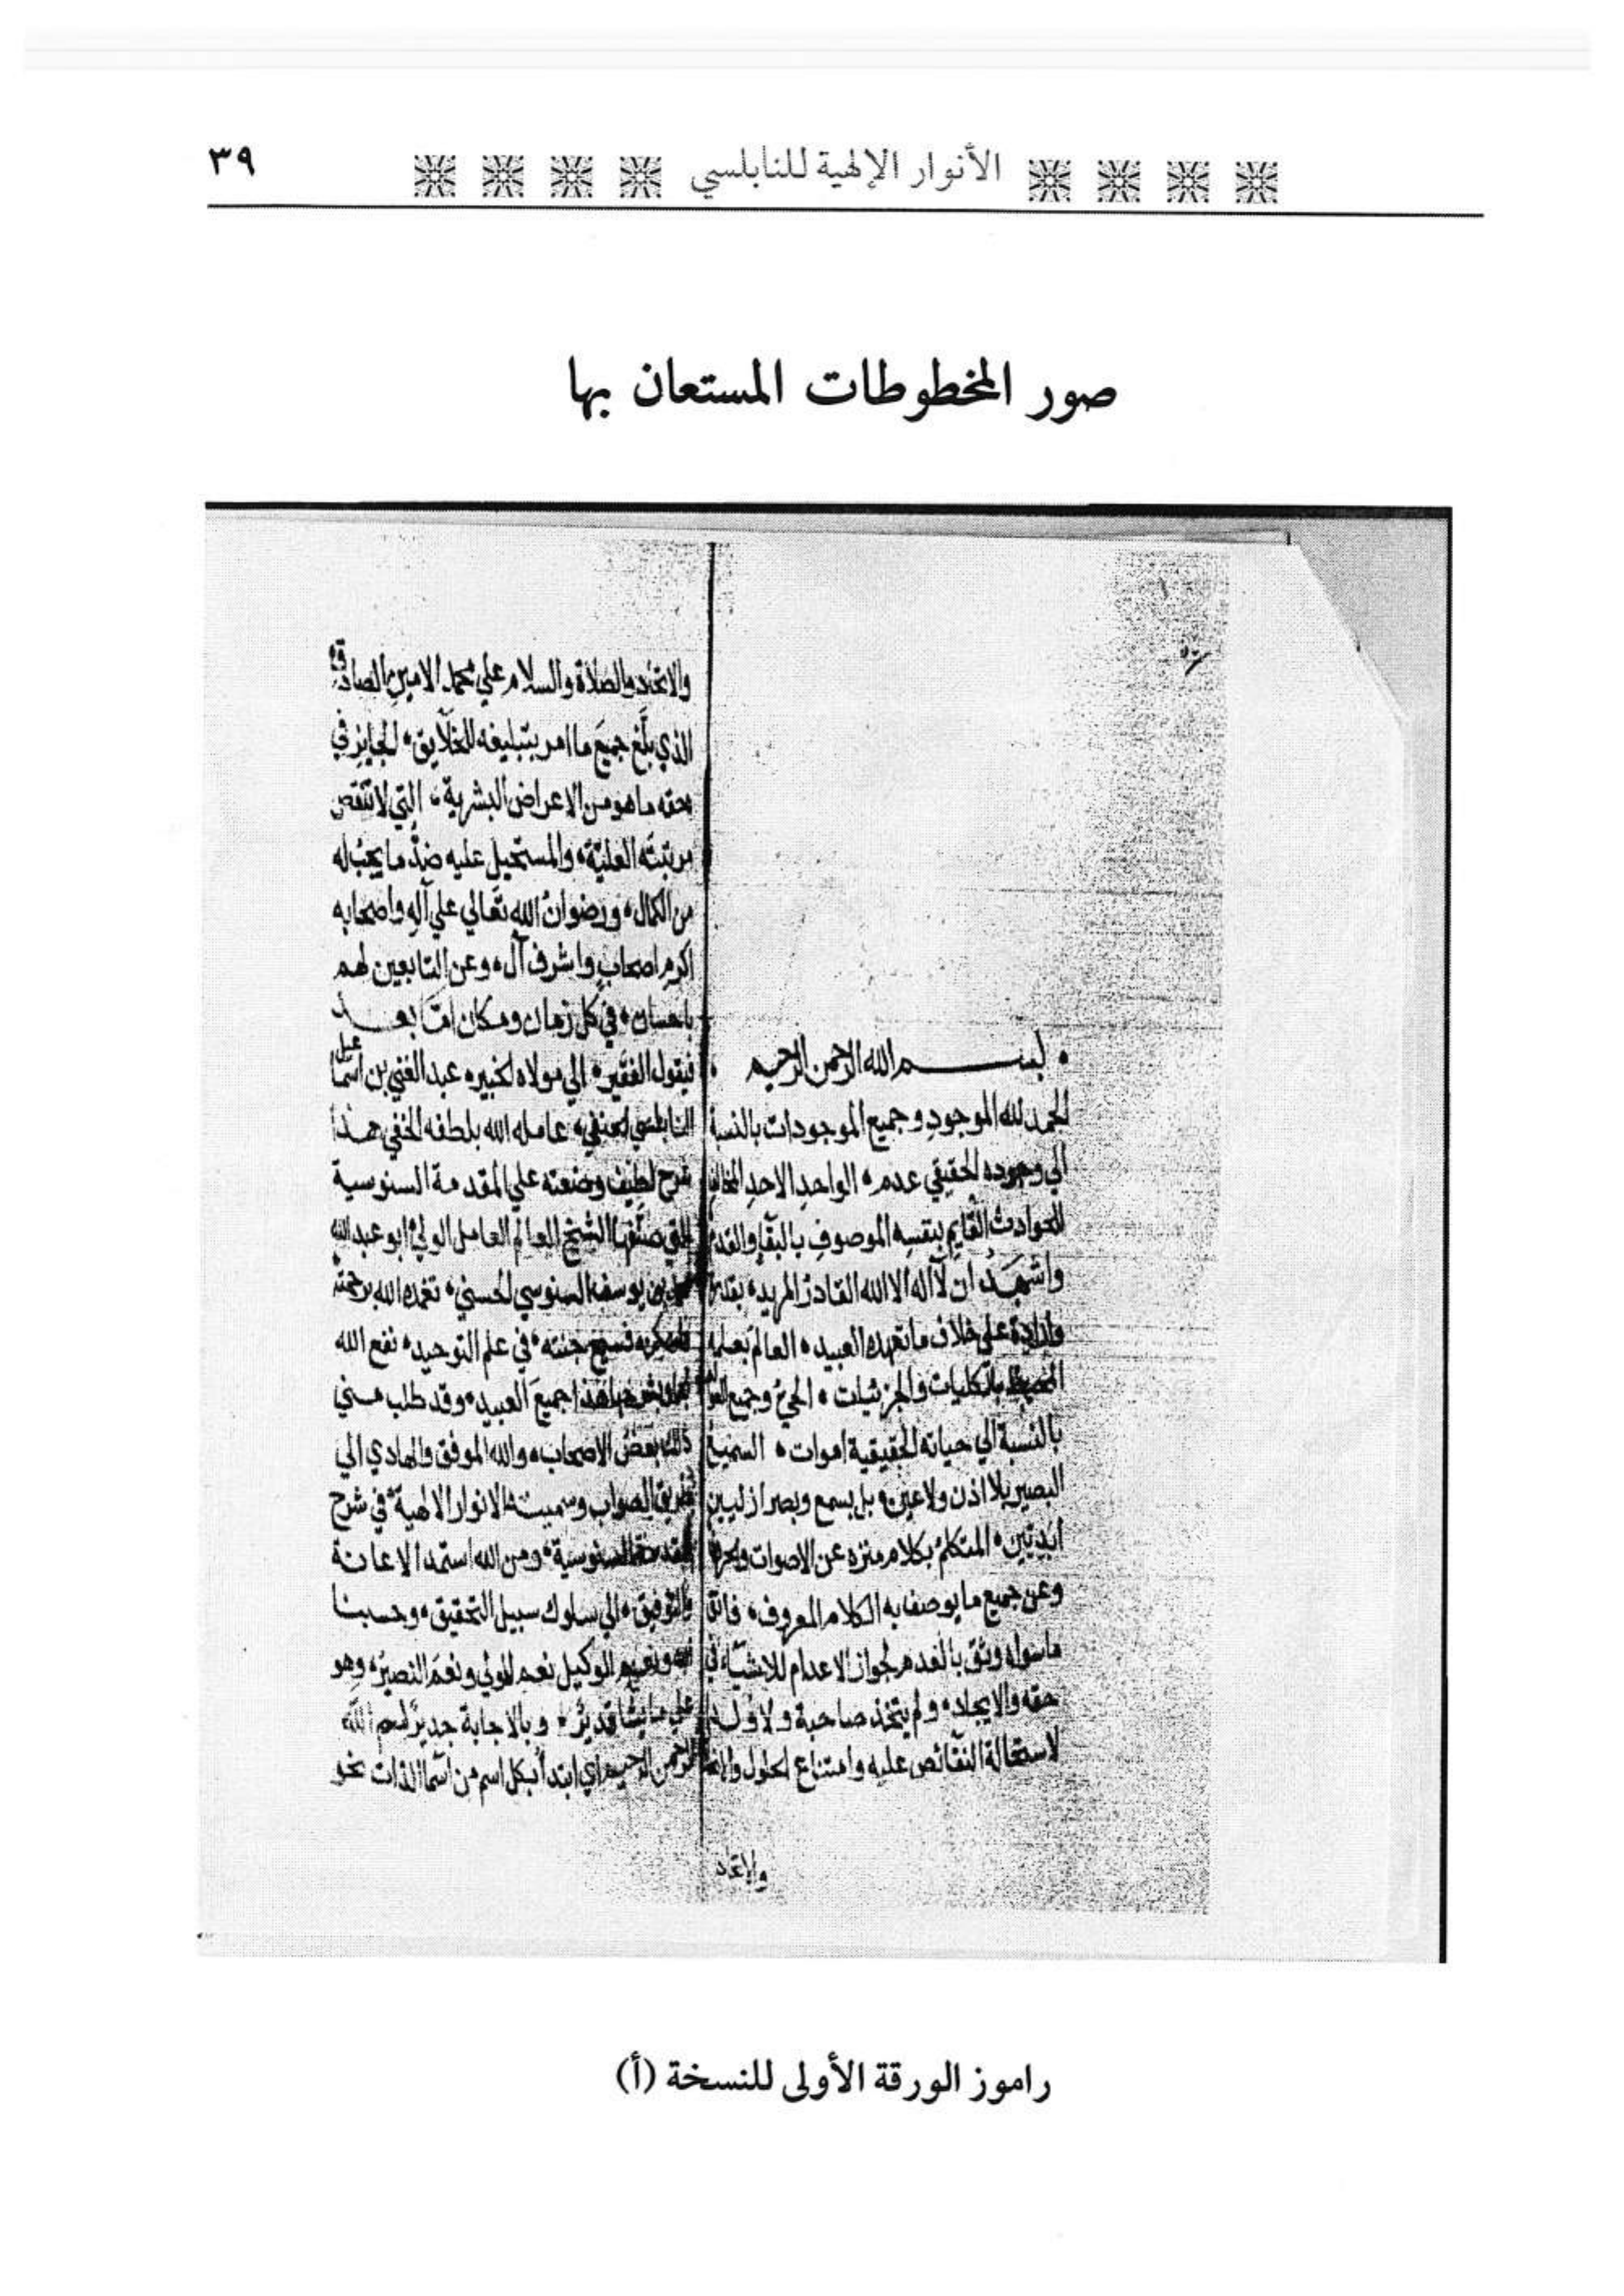 الأنوار الإلهية للنابلسي
٣٩
صور المخطوطات المستعان بها
بسم الله الرحمن الرحيم
الحمد لله الموجود وجميع الموجودات بالنسبة
الي وجوده الحقيقي عدم الواحد الاحد المخالف
للحوادث القايم بنفسه الموصوف بالبقا والقدم
واشهد ان لا اله الا الله القادر المريد بقدرة
وارادة علي خلاف ما تعهده العبيد العالم بعلمه
المحيط بالكليات والجزئيات الحي وجميع
بالنسبة الي حياته الحقيقية اموات السميع
البصير بلا اذن ولا عين بل بسمع وبصر ازليين
ابديين المتكلم بكلام منزه عن الاصوات والحروف
وعن جميع ما يوصف به الكلام المعروف
ما سواه وثق بالعدم لجواز الاعدام للاشياء في
حقه والايجاد ولم يتخذ صاحبة ولا ولد
لاستحالة النقائص عليه وامتناع الحلول والاتحاد
والاتحاد
والاتحاد والصلاة والسلام علي محمد الامين الصادق
الذي بلغ جميع ما امر بتبليغه للخلايق الجايز في
حقه ما هو من الاعراض البشرية التي لا تنقص
مرتبته العلية والمستحيل عليه ضد ما يجب له
من الكمال ورضوان الله تعالي علي آله واصحابه
اكرم اصحاب واشرف آل وعن التابعين لهم
باحسان في كل زمان ومكان اما بعد
فيقول الفقير الي مولاه الخبير عبد الغني بن اسماعيل
النابلسي الحنفي عامله الله بلطفه الخفي هذا
شرح لطيف وضعته علي المقدمة السنوسية
التي صنفها الشيخ العالم العامل الولي ابو عبد الله
محمد بن يوسف السنوسي الحسني تغمده الله برحمته
فسيح جنته في علم التوحيد نفع الله
جميع العبيد وقد طلب مني
ذلك بعض الاصحاب والله الموفق والهادي الي
طريق الصواب وسميته الانوار الالهية في شرح
المقدمة السنوسية ومن الله استمد الاعانة
والتوفيق الي سلوك سبيل التحقيق وحسبنا
الله ونعم الوكيل نعم المولي ونعم النصير وهو
علي ما يشا قدير وبالاجابة جدير بسم الله
الرحمن الرحيم اي ابتدا بكل اسم من اسما الذات نحو
راموز الورقة الأولى للنسخة (أ)